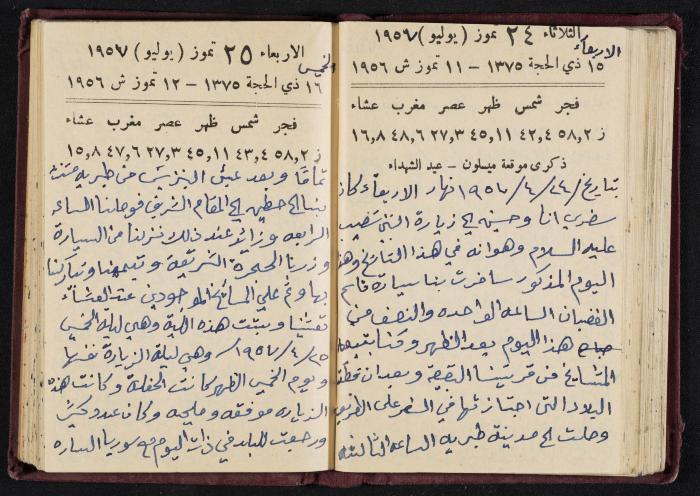 الثلاثاء ٢٤ تموز (يوليو) ١٩٥٦
الاربعاء
١٥ ذي الحجة ١٣٧٥ – ١١ تموز ش ١٩٥٦
فجر شمس ظهر عصر مغرب عشاء
ز ٥٨,٢ ٤٢,٤ ٤٥,١١ ٢٧,٣ ٤٨,٦ ١٦,٨
ذكرى موقعة ميسلون – عيد الشهداء
بتاريخ ٢٤/٤/١٩٥٧ نهار الاربعاء كان
سفري انا وحسين الى زيارة النبي شعيب
عليه السلام وهو انه في هذا التاريخ وهذا
اليوم المذكور سافرت بنا سيارة قاسم
الغضبان الساعه الواحده والنصف من
هذا اليوم بعد الظهر وكنا بتبعية
المشايخ من قريتنا البقيعة وبعد ان قطعنا
البلاد التي اجتازتها في السفر على الطريق
وصلت الى مدينة طبريه الساعه الثالثه
الاربعاء ٢٥ تموز (يوليو) ١٩٥٦
الخميس
١٦ ذي الحجة ١٣٧٥ – ١٢ تموز ش ١٩٥٦
فجر شمس ظهر عصر مغرب عشاء
ز ٥٨,٢ ٤٣,٤ ٤٥,١١ ٢٧,٣ ٤٧,٦ ١٥,٨
تمامًا وبعد البنزين من طبريه مشت
بنا الى حطين الى المقام الشريف فوصلنا الساعه
الرابعه عند ذلك نزلنا من السيارة
وزرنا الحجرة الشريفة وتباركنا
بها على المشايخ الموجودين عند العشاء
تعشينا وبتت هذه الليلة وهي ليلة الخميس
٢٥/٤/١٩٥٧ وهي ليلة الزيارة نفسها
ويوم الخميس الظهر كانت الحفلة وكانت هذه
الزياره موفقه ومليحه وكان عدد كبير
ورجعت للبلد في ذات اليوم مع سوريا السياره